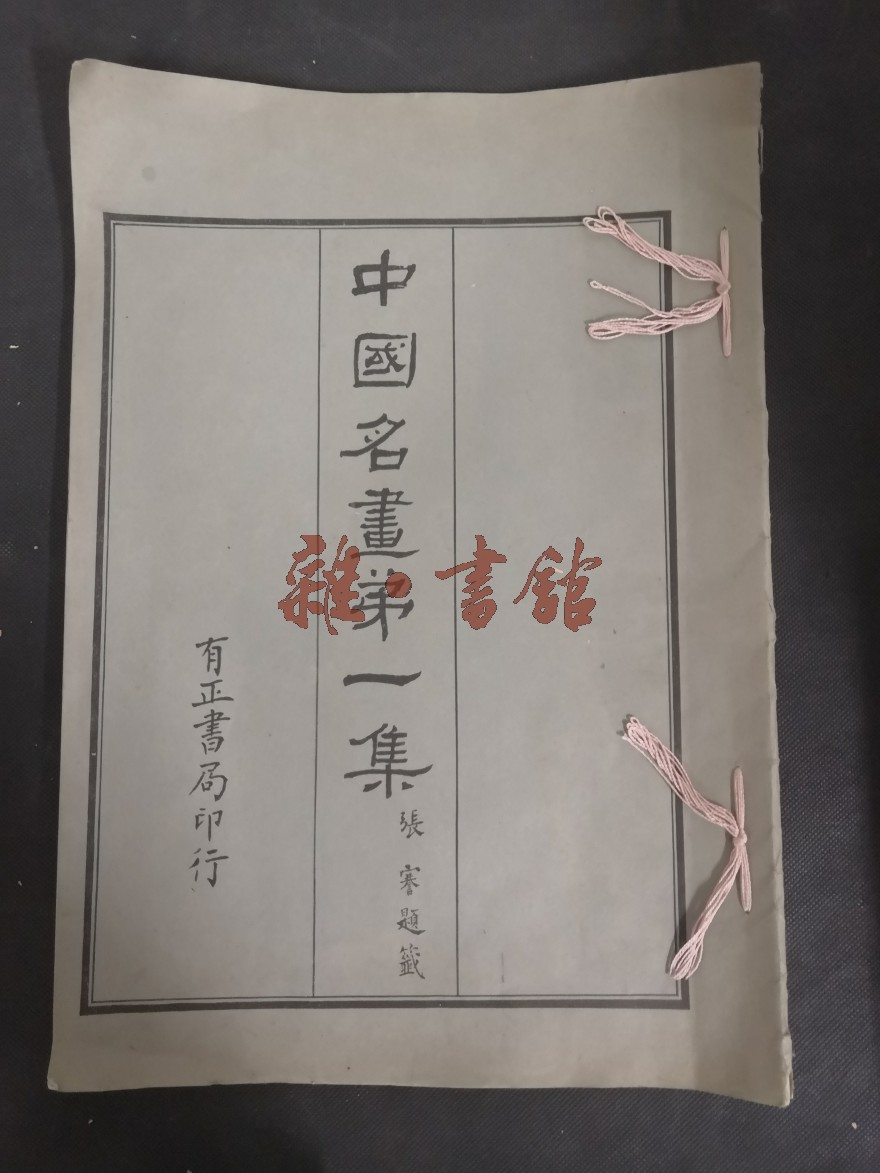 中國名畫弟一集
張謇題籤
有正書局印行
雜·書館